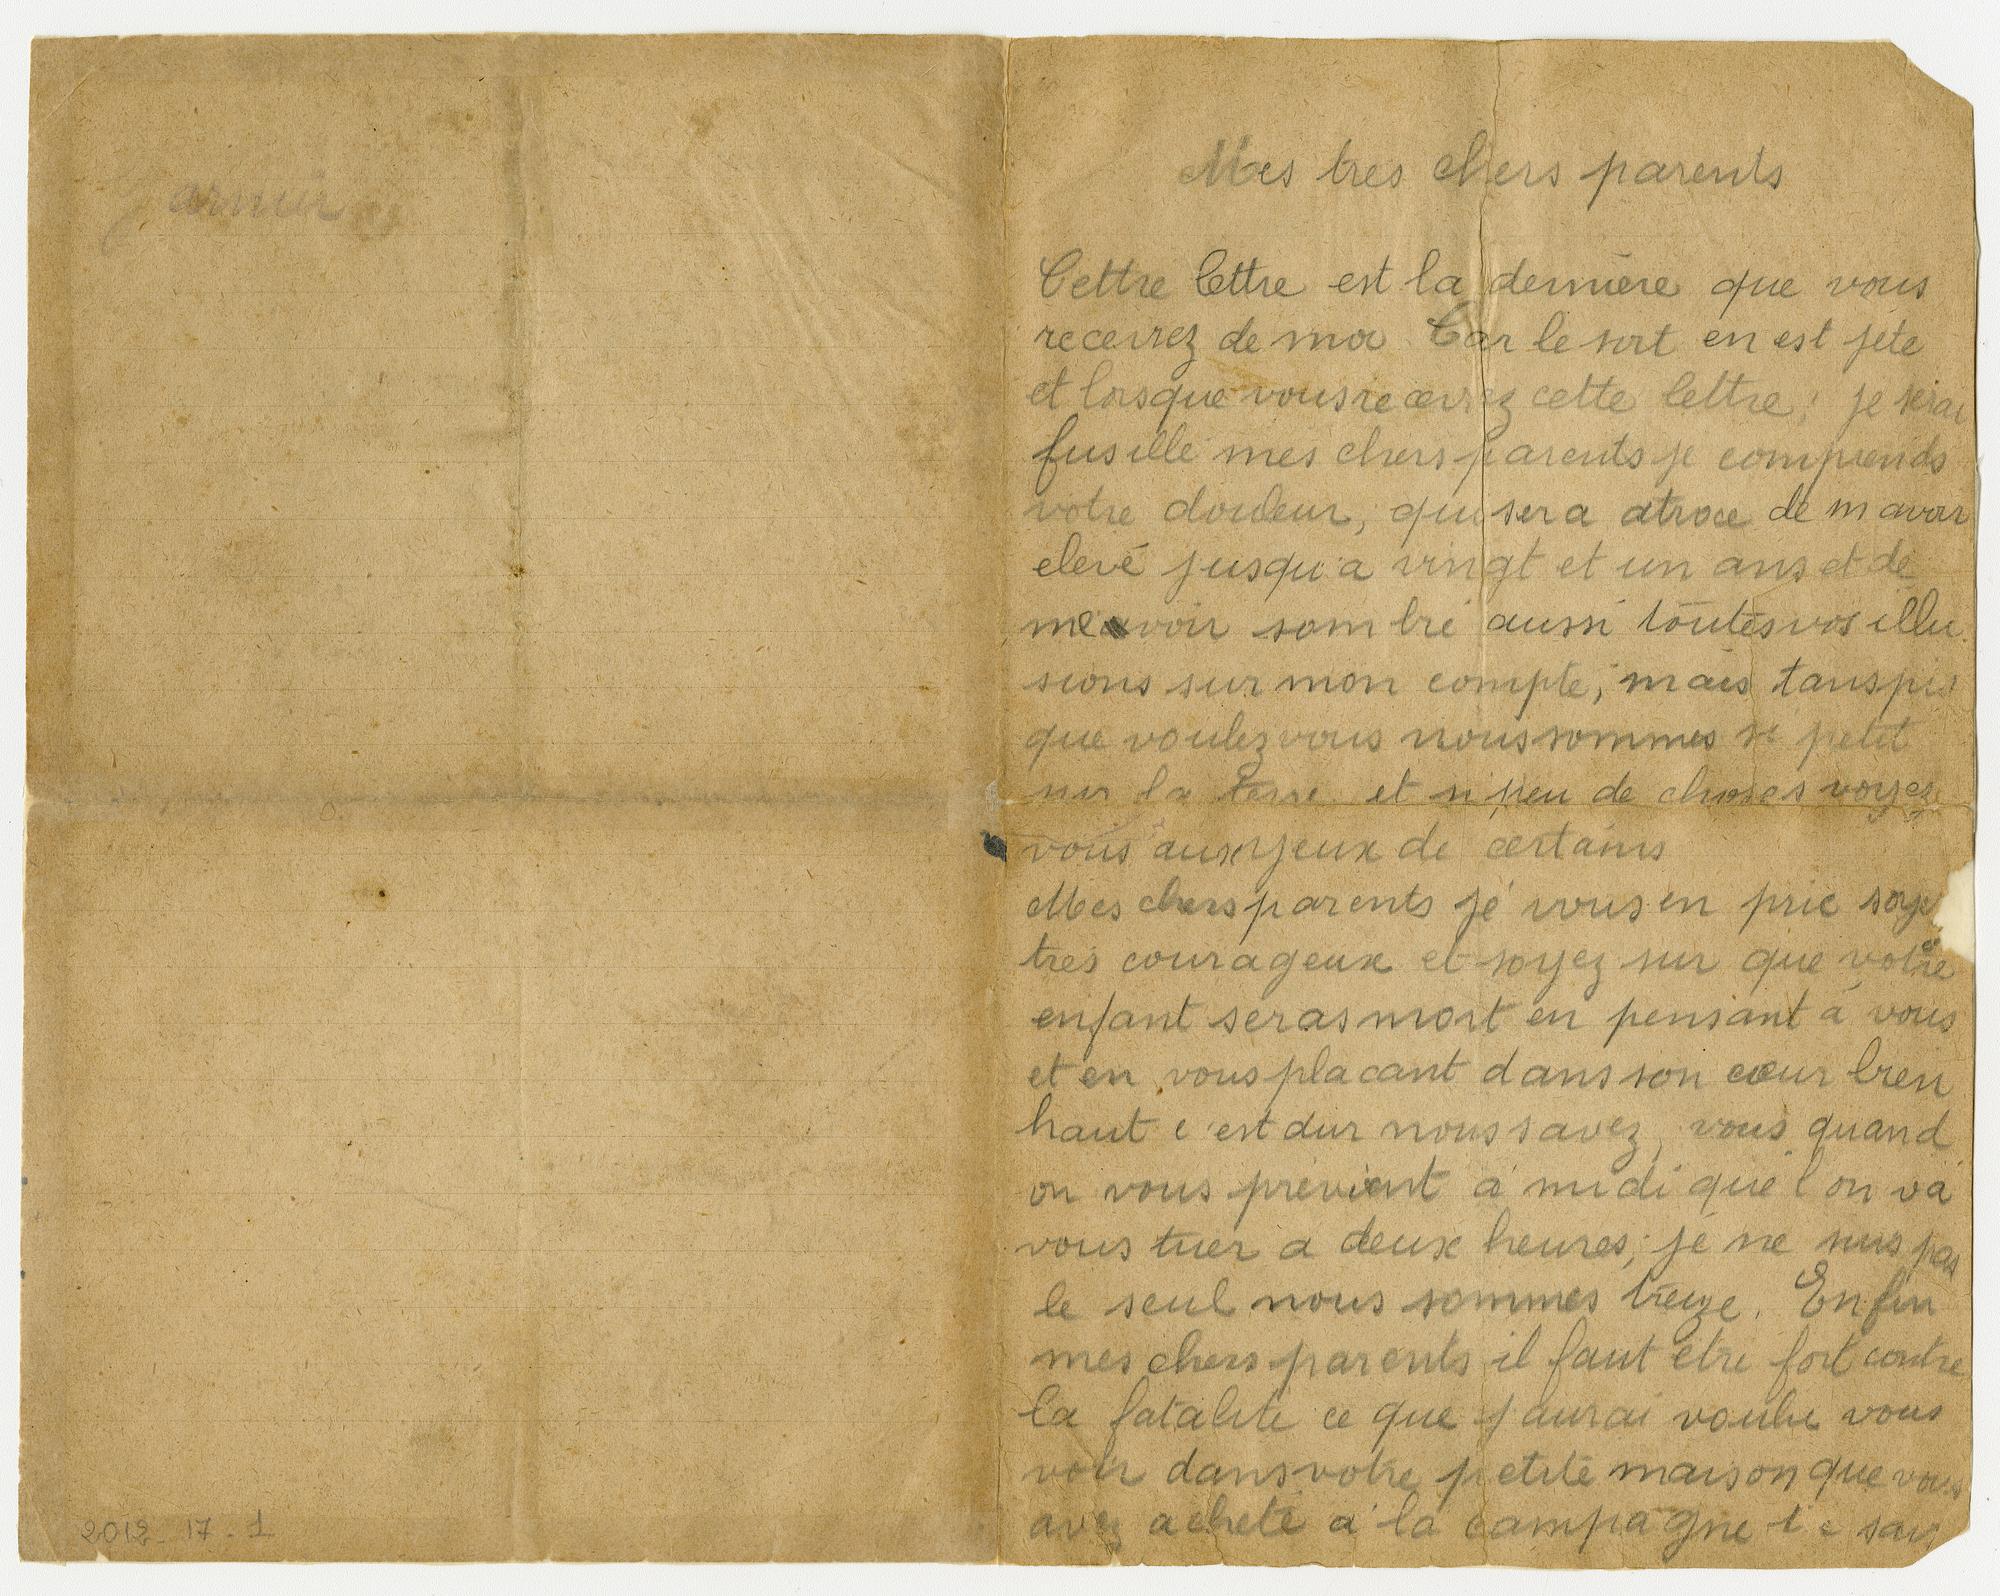 2012-17-1
Mes tres chers parents
Cettre lettre est la dernière que vous
recevrez de moi Car le sort en est jeté
et lorsque vous recevrez cette lettre; je serai
fusillé mes chers parents je comprends
votre douleur, qui sera atroce de m avoir
elevé jusqu'a vingt et un ans et de
me voir sombré aussi toutes vos illu
sions sur mon compte; mais tanspis
que voulez vous nous sommes si petit
sur la terre et si peu de choses voyez
vous aux yeux de certains
Mes chers parents je vous en prie soye
très courageux et soyez sur que votre
enfant seras mort en pensant à vous
et en vous placant dans son cœur bien
haut c'est dur nous savez, vous quand
on vous previent à midi que l'on va
vous tuer a deux heures; je ne suis pas
le seul nous sommes treize. Enfin
mes chers parents il faut etre fort contre
la fatalité ce que j'aurai voulu vous
voir dans votre petite maison que vous
avez acheté à la campagne